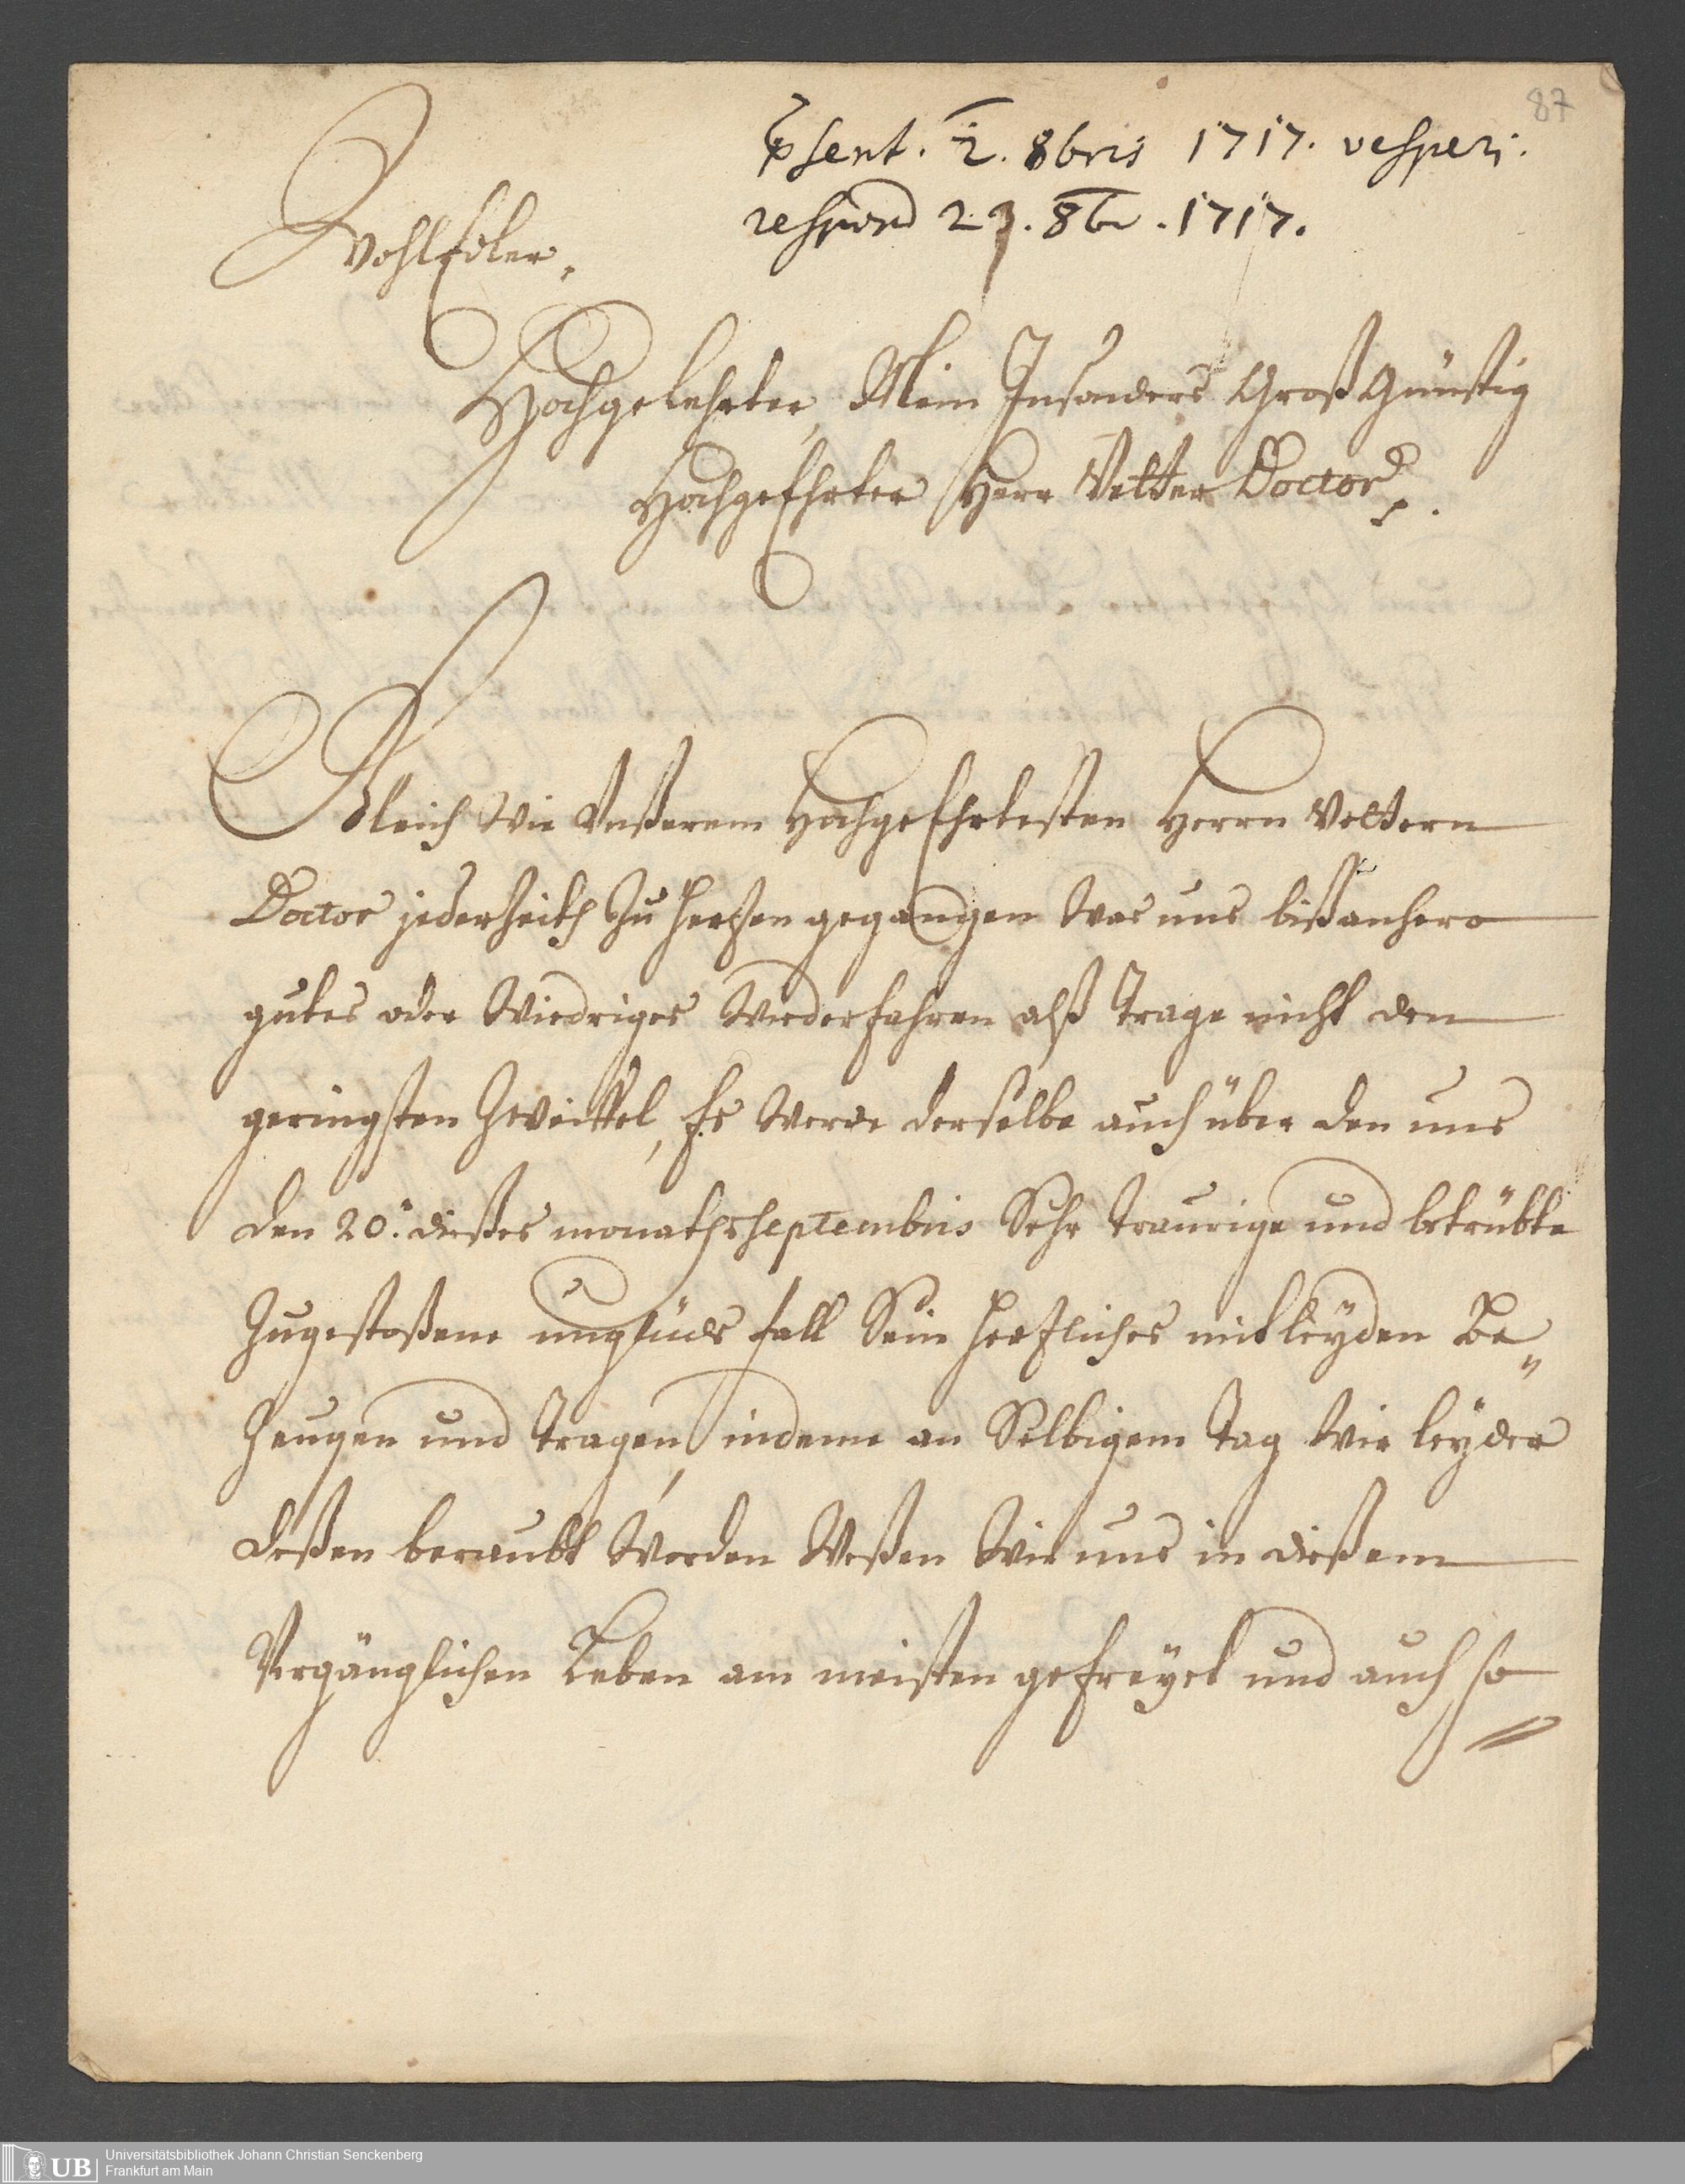 87
psent. 2. 8bris 1717. vesperi.
respond 29. 8br. 1717.
WohlEdler,
Hochgelehrter, Mein Insonders Groß Günstig
HochgeEhrter Herr Vetter Doctor.
Gleich wie Unßerem HochgeEhrtesten Herrn Vettern
Doctor jederzeith zu Hertzen gegangen Was uns bißanhero
gutes oder Wiedriges Wiederfahren alß trage nicht den
geringsten Zweiffel, Es Werde derselbe auch über den uns
den 20. dießes monaths septembris Sehr traurige und betrübte
Zugestoßene unglücks fall Sein Hertzliches mitleyden Be„
Zeugen und tragen, indeme an Selbigem Tag Wir leyder
deßen beraubt Worden Weßen Wir uns in dießem
Vergänglichen Leben am meisten gefreyet und auch so
UB
Universitätsbibliothek Johann Christian Senckenberg
Frankfurt am Main